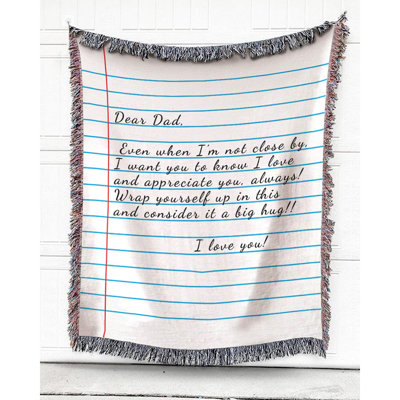 Dear Dad,
Even when I'm not close by,
I want you to know I love
and appreciate you, always!
Wrap yourself up in this
and consider it a big hug!!
I love you!